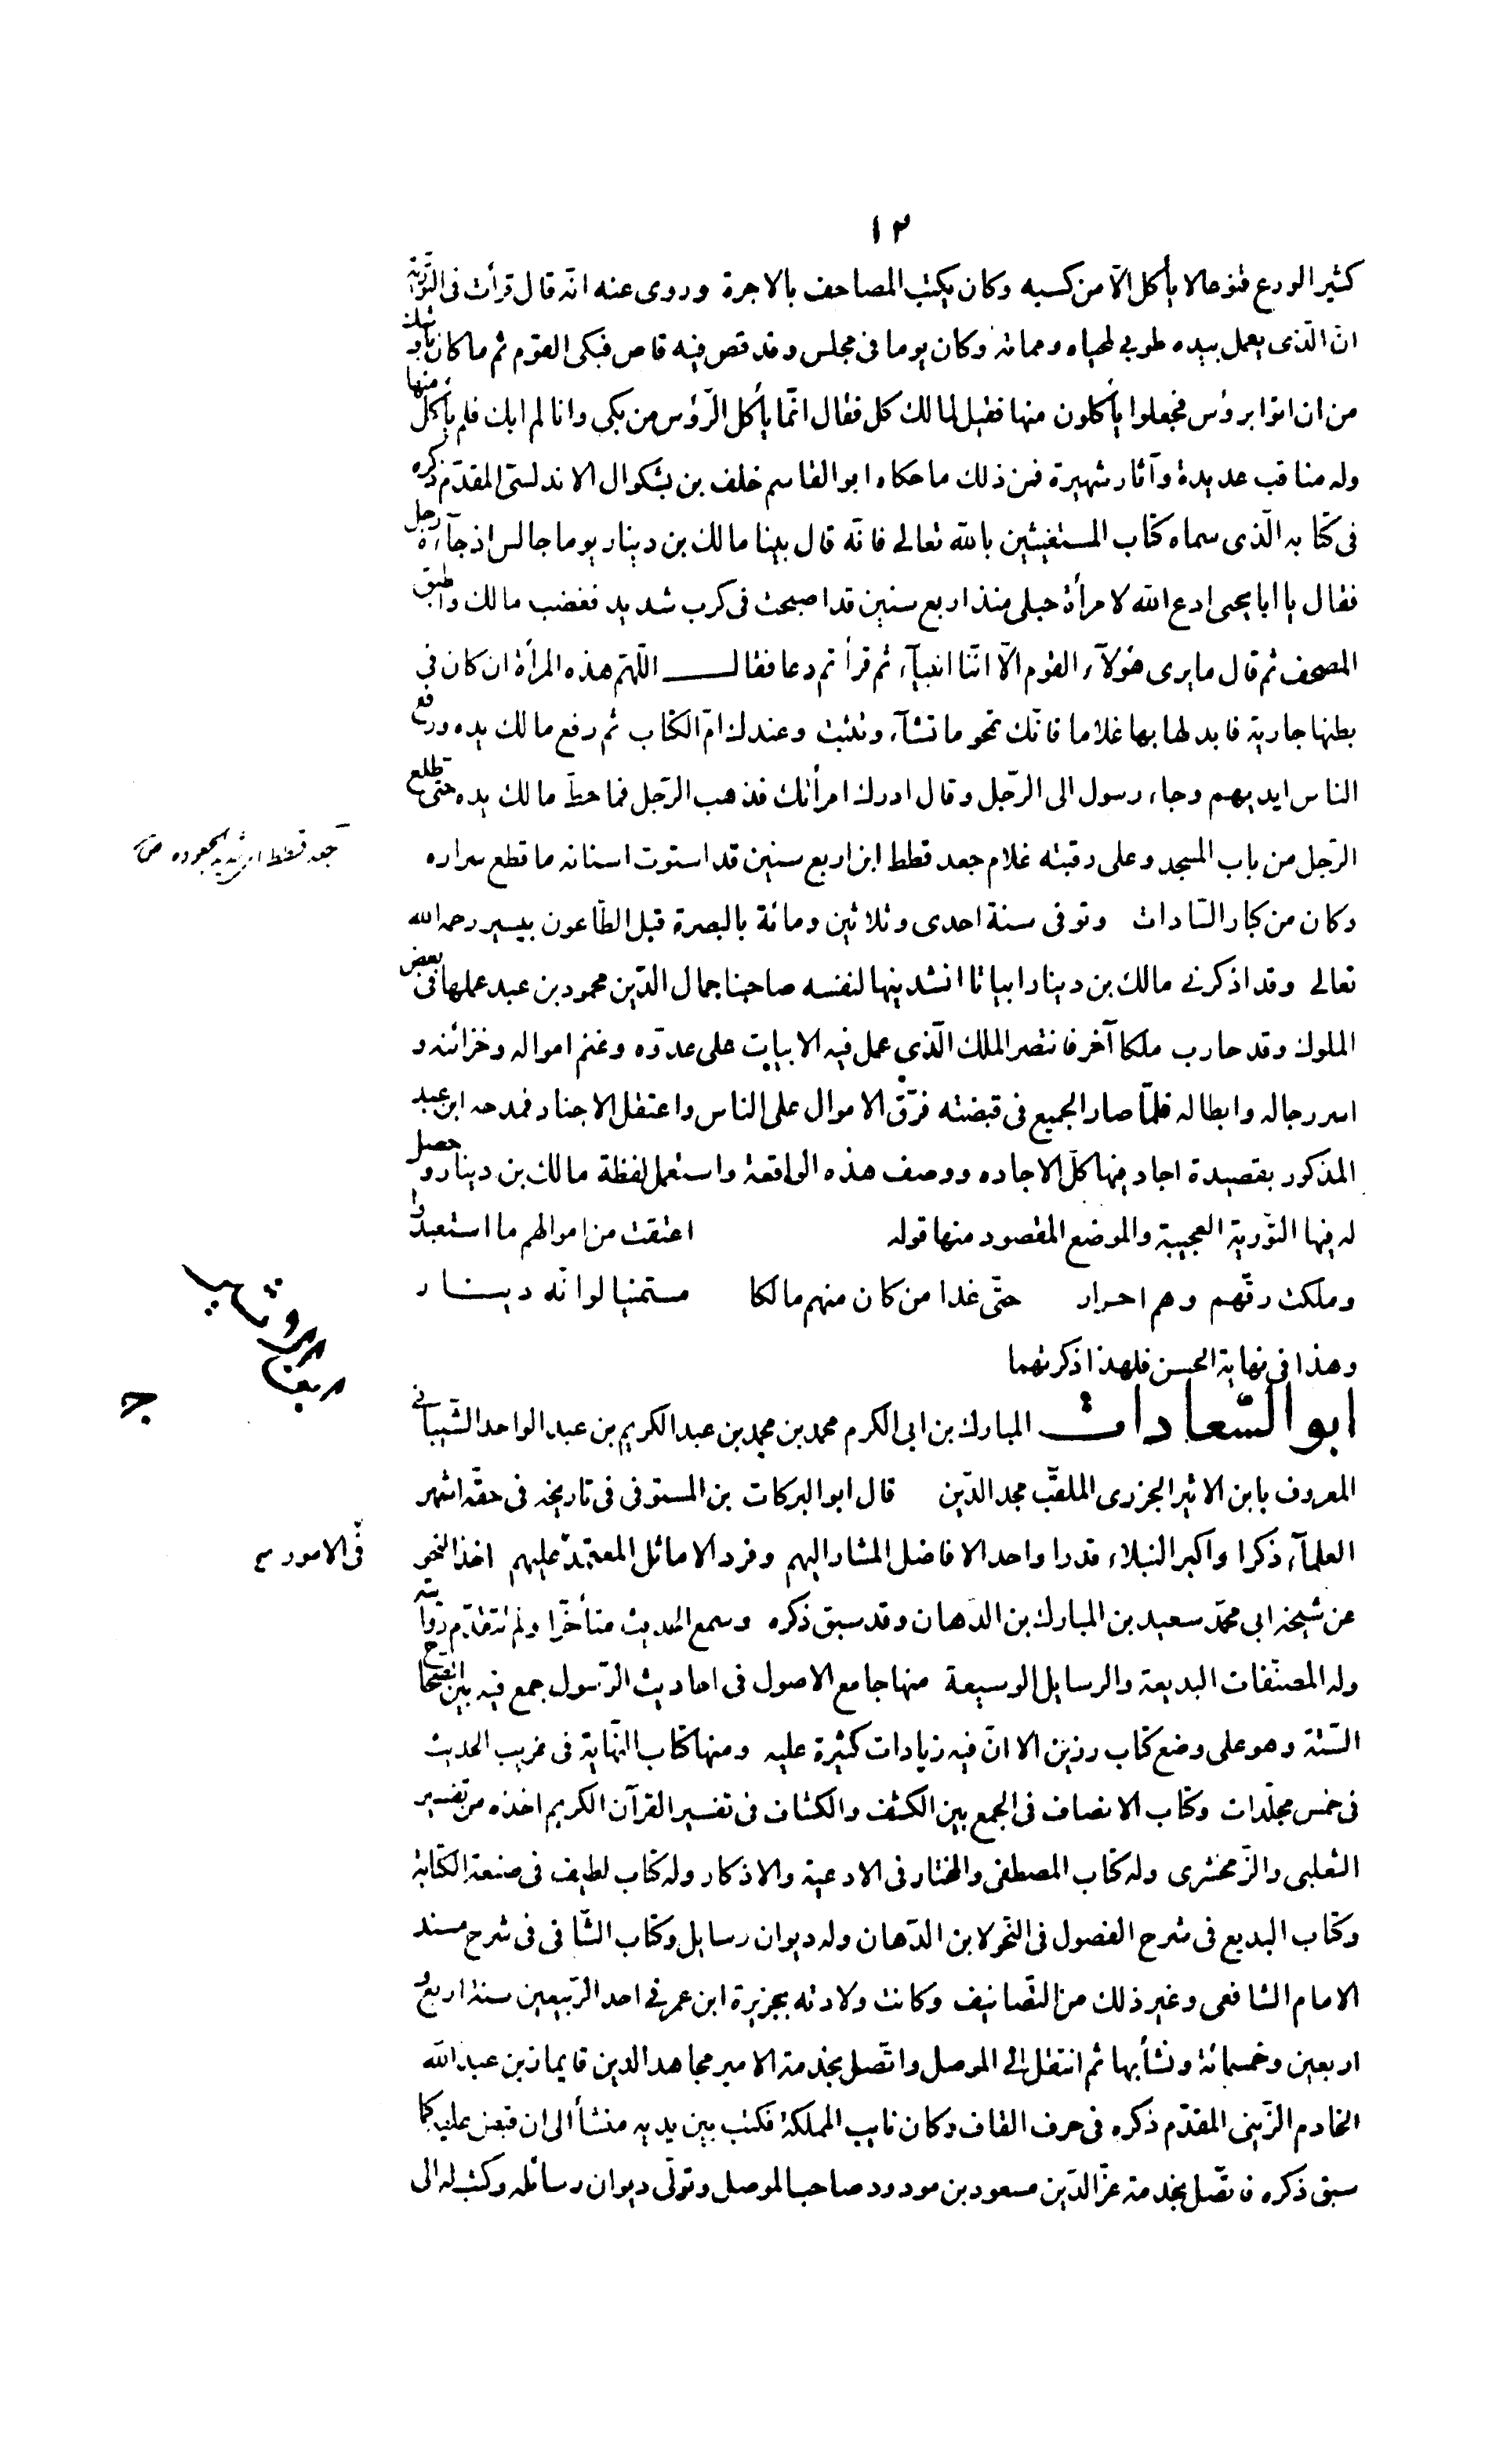 ١٢
كثير الورع قنوعا لا يأكل الّا من كسبه وكان يكتب المصاحف بالاجرة وروى عنه انّه قال قرأت فى التّوراية
انّ الّذى يعمل بيده طوبى لمحياه ومماته وكان يوما فى مجلس وقد قص فيه قاص فبكى القوم ثم ما كان باوشك
من ان اتوا برؤس فجعلوا يأكلون منها فقيل لمالك كل فقال انّما يأكل الرّؤس من بكى وانا لم ابك فلم يأكل منها
وله مناقب عديدة وآثار شهيرة فمن ذلك ما حكاه ابو القاسم خلف بن بشكوال الاندلسىّ المقدّم ذكره
فى كتابه الّذى سماه كتاب المستغيثين بالله تعالى فانّه قال بينا مالك بن دينار يوما جالس اذ جآءه رجل
فقال يا ابا يحيى ادع الله لامرأة حبلى منذ اربع سنين قد اصبحت فى كرب شديد فغضب مالك واطبق
المصحف ثم قال ما يرى هؤلآء القوم الّا انّنا انبيآء ثم قرأ ثم دعا فقال اللّهمّ هذه المرأة ان كان فى
بطنها جارية فابدلها بها غلاما فانّك تمحو ما تشآء وتثبت وعندك امّ الكتاب ثم رفع مالك يده ورفع
الناس ايديهم وجاء رسول الى الرّجل وقال ادرك امرأتك فذهب الرّجل فما حطّ مالك يده حتّى طلع
الرّجل من باب المسجد وعلى رقبته غلام جعد قطط ابن اربع سنين قد استوت اسنانه ما قطع سراره
جعد قطط اى شديد الجعوده
وكان من كبار السّادات وتوفى سنة احدى وثلاثين ومائة بالبصرة قبل الطّاعون بيسير رحمه الله
تعالى وقد اذكرنى مالك بن دينار ابياتا انشدنيها لنفسه صاحبنا جمال الدّين محمود بن عبد عملها فى بعض
الملوك وقد حارب ملكا آخر فانتصر الملك الّذى عمل فيه الابيات على عدوّه وغنم امواله وخزائنه و
اسر رجاله وابطاله فلمّا صار الجميع فى قبضته فرّق الاموال على الناس واعتقل الاجناد فمدحه ابن عبد
المذكور بقصيدة اجاد فيها كلّ الاجاده ووصف هذه الواقعة واستعمل لفظة مالك بن دينار وحصل
له فيها التّورية العجيبة والموضع المقصود منها قوله اعتقت من اموالهم ما استعبدوا
وملكت رقّهم وهم احرار حتّى غدا من كان منهم مالكا متمنيا لو انّه دينار
وهذا فى نهاية الحسن فلهذا ذكرتهما
ابو السّعادات المبارك بن ابى الكرم محمد بن محمد بن عبد الكريم بن عبد الواحد الشّيبانى
المعروف بابن الاثير الجزرى الملقّب مجد الدّين قال ابو البركات بن المستوفى فى تاريخه فى حقّه اشهر
العلمآء ذكرا واكبر النبلاء قدرا واحد الافاضل المشار اليهم وفرد الاماثل المعتمد عليهم اخذ النحو
فى الامور
عن شيخه ابى محمّد سعيد بن المبارك بن الدّهان وقد سبق ذكره وسمع الحديث متأخّرا ولم تتقدّم روايته
وله المصنّفات البديعة والرسايل الوسيعة منها جامع الاصول فى احاديث الرّسول جمع فيه بين الصّحاح
السّتّة وهو على وضع كتاب رزين الا انّ فيه زيادات كثيرة عليه ومنها كتاب النّهاية فى غريب الحديث
فى خمس مجلّدات وكتاب الانصاف فى الجمع بين الكشف والكشاف فى تفسير القرآن الكريم اخذه من تفسير
الثعلبى والزّمخشرى وله كتاب المصطفى والمختار فى الادعية والاذكار وله كتاب لطيف فى صنعة الكتابة
وكتاب البديع فى شرح الفصول فى النّحو لابن الدّهان وله ديوان رسايل وكتاب الشّافى فى شرح مسند
الامام الشافعى وغير ذلك من التّصانيف وكانت ولادته بجزيرة ابن عمر فى احد الرّبيعين سنة اربع و
اربعين وخمسمائة ونشأ بها ثم انتقل الى الموصل واتّصل بخدمة الامير مجاهد الدين قايماز بن عبد الله
الخادم الزّينى المقدّم ذكره فى حرف القاف وكان نايب المملكة فكتب بين يديه منشأ الى ان قبض عليه كما
سبق ذكره فاتّصل بخدمة عزّ الدّين مسعود بن مودود صاحب الموصل وتولّى ديوان رسائله وكتب له الى